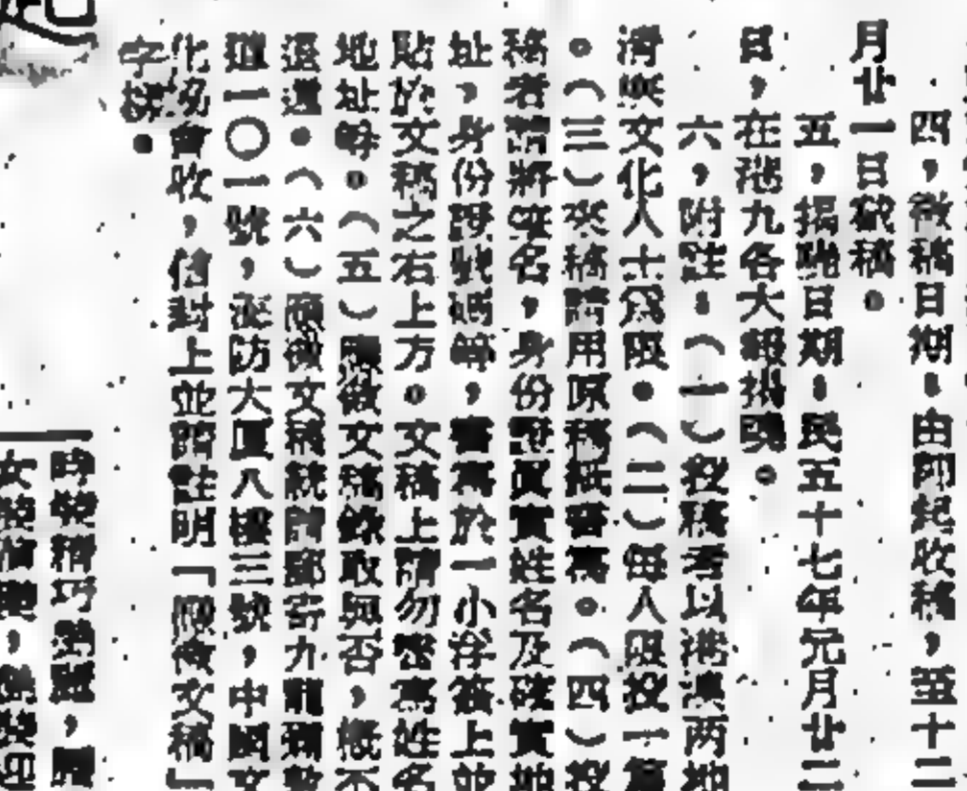 四，徵稿日期：由即起收稿，至十二
月廿一日截稿。
五，揭曉日期：民五十七年元月廿二
日，在港九各大報揭曉。
六，附註：（一）投稿者以港澳两地
清寒文化人士爲限。（二）每人限投一篇
。（三）來稿請用原稿紙書寫。（四）投
稿者請將筆名，身份證眞實姓名及確實地
址，身份證號碼等，書寫於一小浮簽上並
貼於文稿之右上方。文稿上請勿寫姓名
地址等。（五）應徵文稿錄取與否，概不
退還。（六）應徵文稿統請郵寄九龍彌敦
道一〇一號，海防大厦八樓三號，中國文
化協會收，信封上並請註明「應徵文稿」
字樣。
時裝精巧
女裝